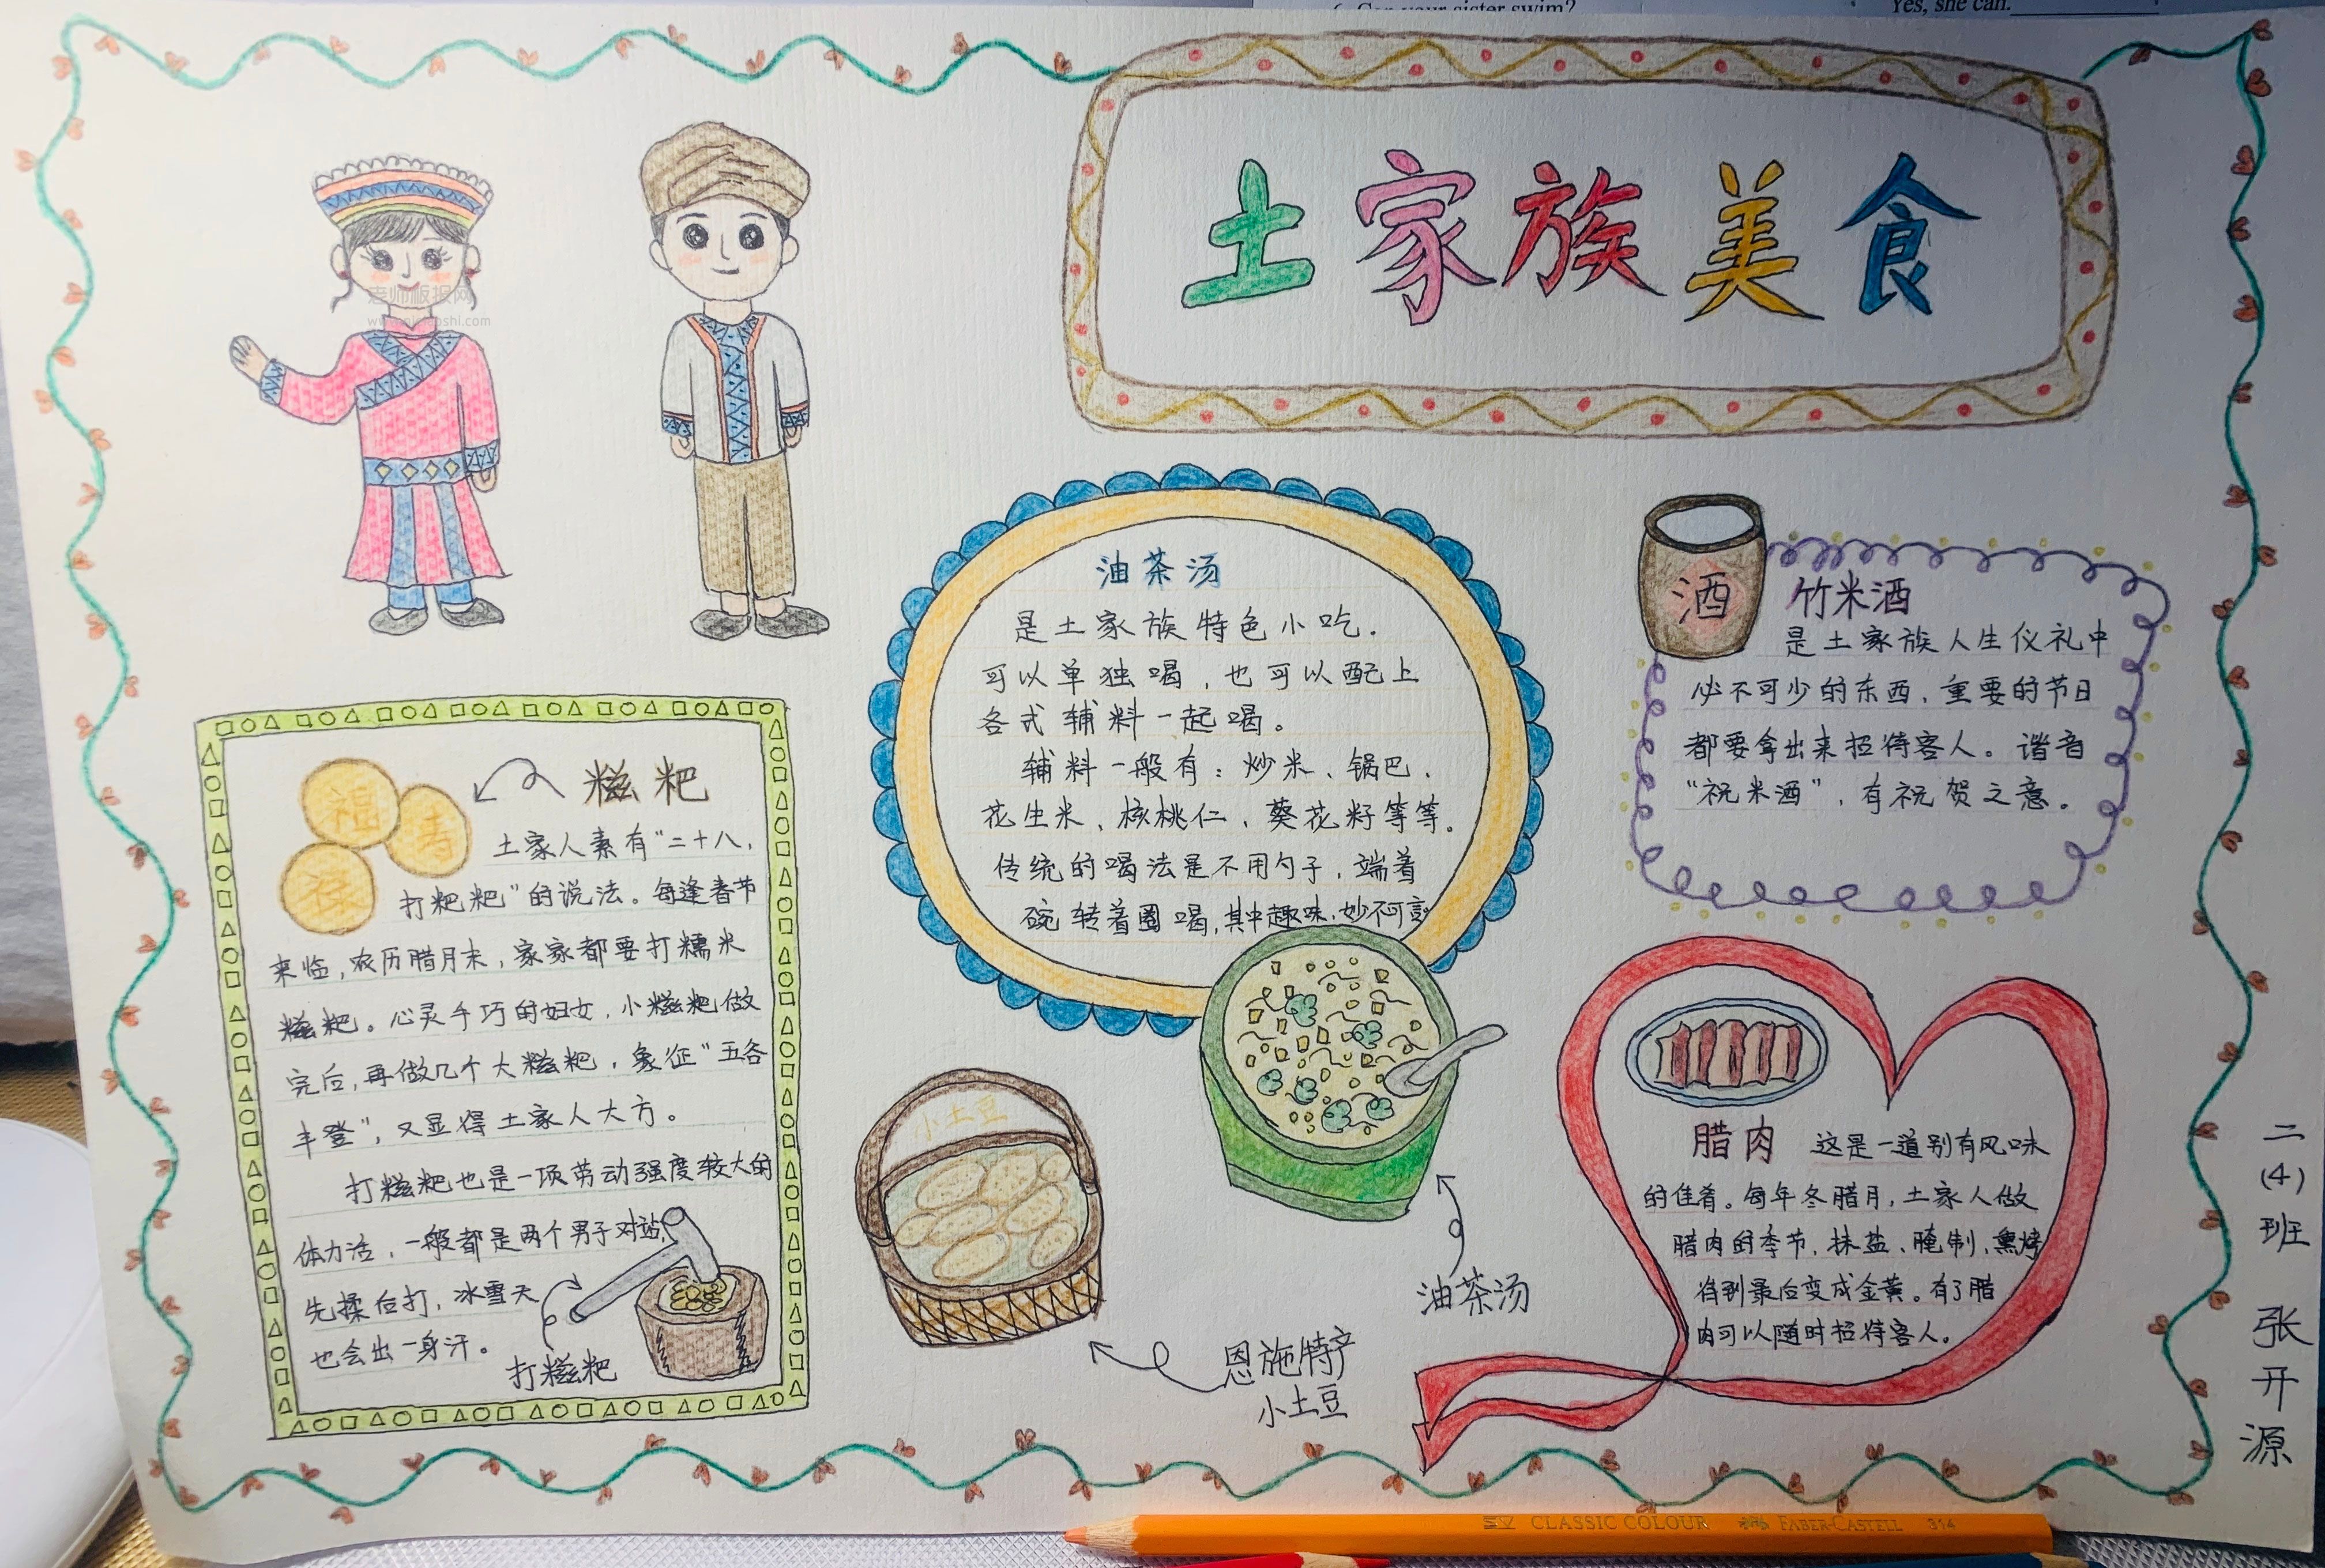 6. Can your sister swim?
Yes, she can.
土家族美食
老师板报网
糍粑
福
寿
禄
土家人素有“二十八,
打粑粑”的说法。每逢春节
来临,农历腊月末,家家都要打糯米
糍粑。心灵手巧的妇女,小糍粑做
完后,再做几个大糍粑,象征“五各
丰登”,又显得土家人大方。
打糍粑也是一项劳动强度较大的
体力活,一般都是两个男子对站,
先揉后打,冰雪天
也会出一身汗。
打糍粑
油茶汤
是土家族特色小吃.
可以单独喝,也可以配上
各式辅料一起喝。
辅料一般有:炒米、锅巴、
花生米、核桃仁、葵花籽等等。
传统的喝法是不用勺子,端着
碗转着圈喝,其中趣味,妙不可言
油茶汤
小土豆
恩施特产
小土豆
酒
竹米酒
是土家族人生仪礼中
必不可少的东西,重要的节日
都要拿出来招待客人。谐音
“祝米酒”,有祝贺之意。
腊肉 这是一道别有风味
的佳肴。每年冬腊月,土家人做
腊肉的季节,抹盐、腌制,熏烤
待到最后变成金黄。有了腊
肉可以随时招待客人。
二(4)班 张开源
CLASSIC COLOUR FABER-CASTELL 314